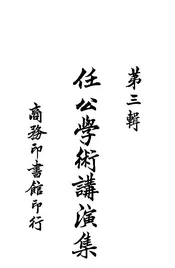 第三輯
任公學術講演集
商務印書館印行